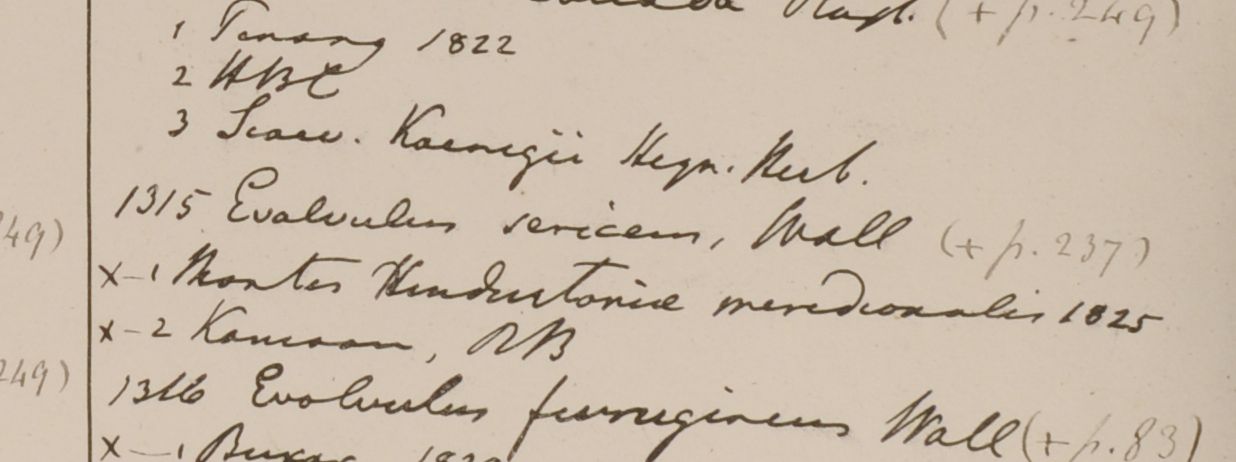 Roxb. (+ p. 249)
1 Penang 1822
2 HBC
3 Koenigii Heyn. Herb.
1315 Evolvulus sericeus, Wall (+ p. 237)
49)
x-1 Montes Hindustaniae meridionalis 1825
x-2 Kamaon, RB
249)
1316 Evolvulus ferrugineus Wall (+ p. 83)
x-1 Buxar 1820